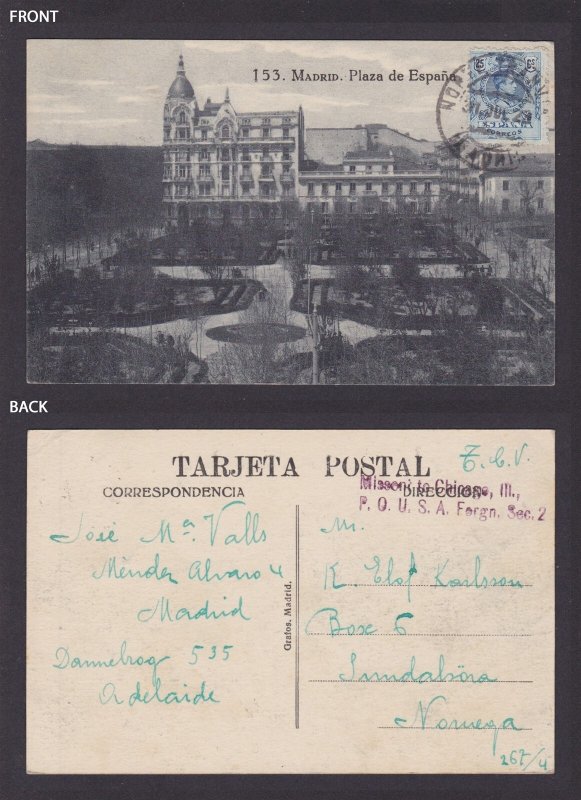 FRONT
153. MADRID. Plaza de España
25 CS
CORREOS
BACK
T.C.V.
TARJETA POSTAL
CORRESPONDENCIA
DIRECCION
Missent to Chicago, Ill.,
P. O. U. S. A. Forgn. Sec. 2
José Mª. Valls
Méndez Alvaro 4
Madrid
Dannebrog 535
Adelaide
Grafos. Madrid.
Mr.
K. Elof Karlsson
Box 6
Noruega
267/4